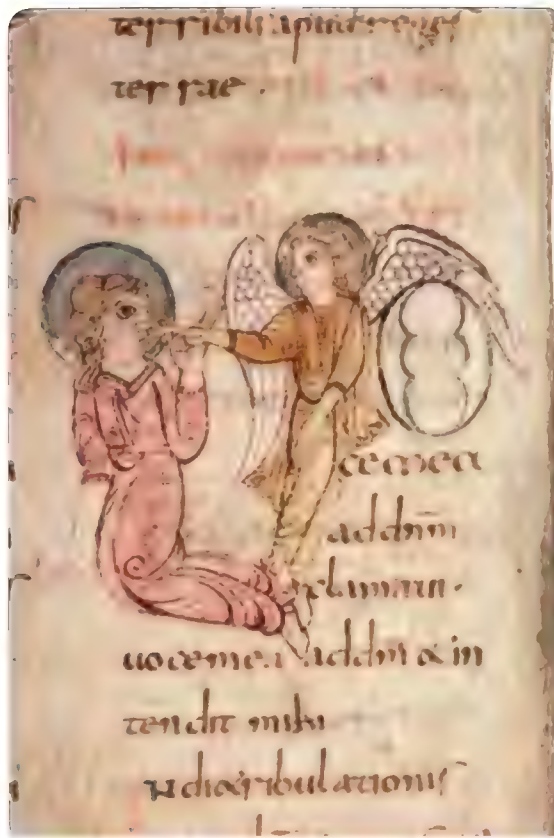 terribili apud reges
terrae .
ce mea
ad dnm̄
clamaui .
uoce mea ad dm̄ & in
tendit mihi
IN die tribulationis